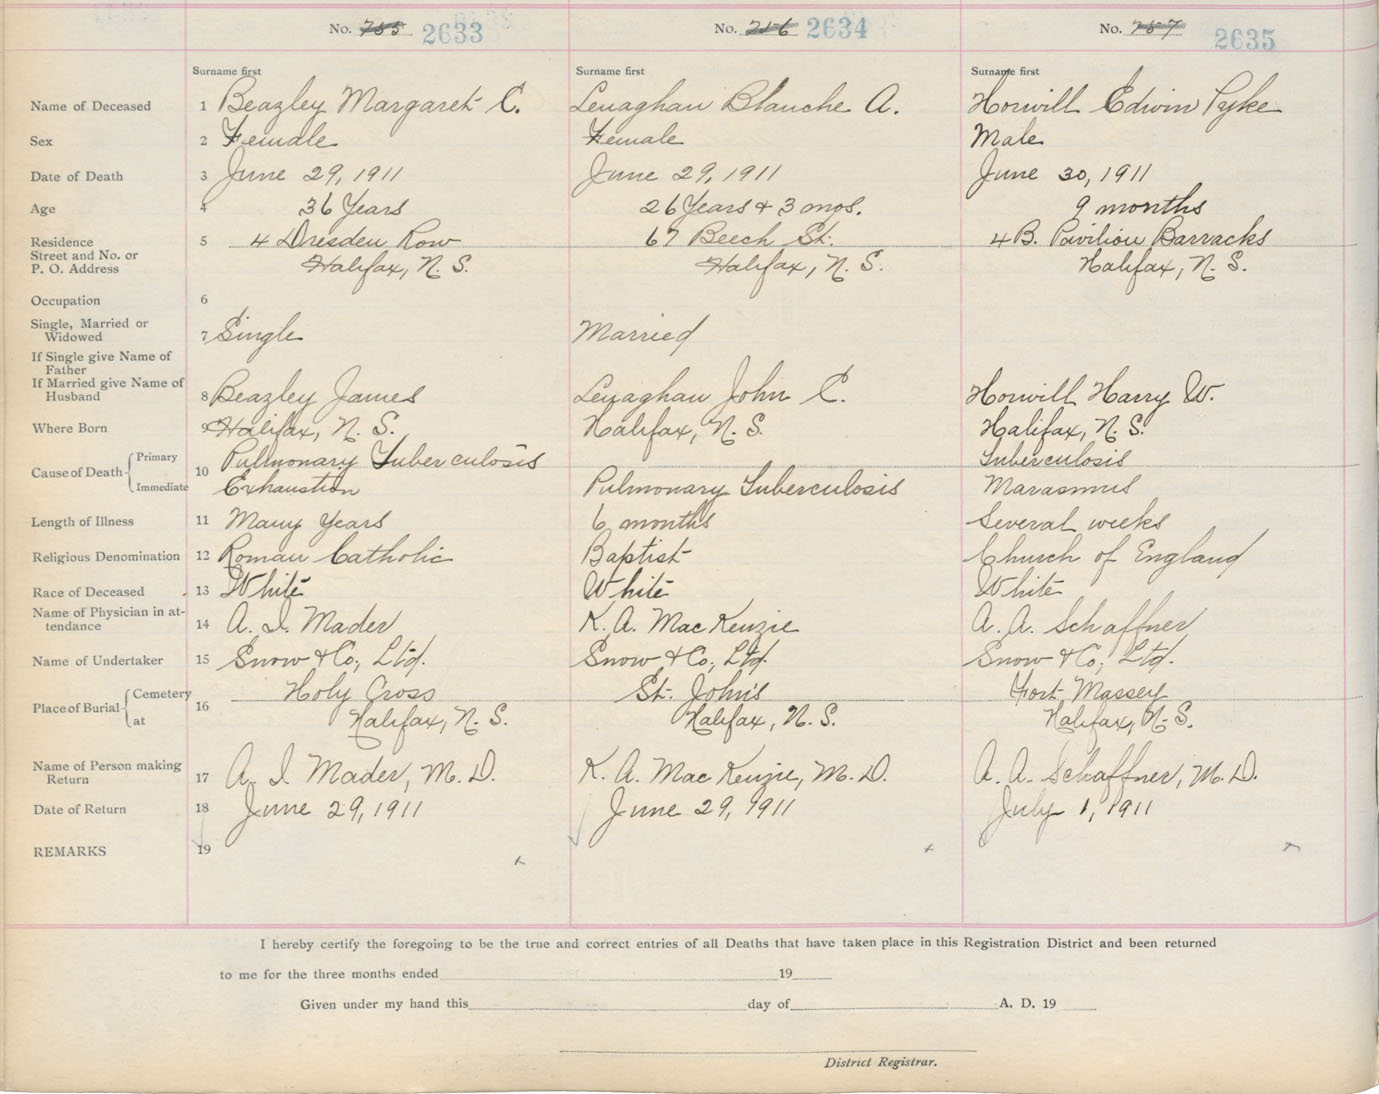 No. 755 2633 No. 756 2634 No. 757 2635
Surname first Surname first Surname first
Name of Deceased 1 Beazley Margaret C. Lenaghan Blanche A. Horwill Edwin Pyke
Sex 2 Female Female Male
Date of Death 3 June 29, 1911 June 29, 1911 June 30, 1911
Age 4 36 Years 26 Years + 3 mos. 9 months
Residence 5 4 Dresden Row 67 Beech St. 4 B. Pavilion Barracks
Street and No. or
P. O. Address Halifax, N. S. Halifax, N. S. Halifax, N. S.
Occupation 6
Single, Married or
Widowed 7 Single Married
If Single give Name of
Father
If Married give Name of
Husband 8 Beazley James Lenaghan John C. Horwill Harry W.
Where Born 9 Halifax, N. S. Halifax, N. S. Halifax, N. S.
Cause of Death Primary 10 Pulmonary Tuberculosis Tuberculosis
Immediate Exhaustion Pulmonary Tuberculosis Marasmus
Length of Illness 11 Many Years 6 months Several weeks
Religious Denomination 12 Roman Catholic Baptist Church of England
Race of Deceased 13 White White White
Name of Physician in at-
tendance 14 A. I. Mader K. A. MacKenzie A. A. Schaffner
Name of Undertaker 15 Snow & Co., Ltd. Snow & Co., Ltd. Snow & Co., Ltd.
Place of Burial Cemetery 16 Holy Cross St. John's Fort Massey
at Halifax, N. S. Halifax, N. S. Halifax, N. S.
Name of Person making
Return 17 A. I. Mader, M. D. K. A. MacKenzie, M. D. A. A. Schaffner, M. D.
Date of Return 18 June 29, 1911 June 29, 1911 July 1, 1911
REMARKS 19
I hereby certify the foregoing to be the true and correct entries of all Deaths that have taken place in this Registration District and been returned
to me for the three months ended 19
Given under my hand this day of A. D. 19
District Registrar.